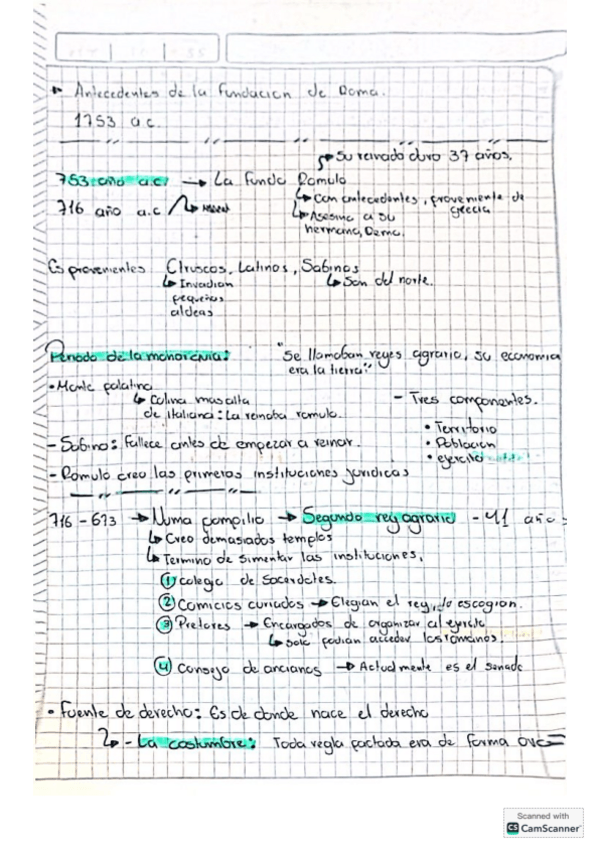 Antecedentes de la fundacion de Roma.
1753 a.c.
Su reinado duro 37 años.
753 año a.c → La fundo Romulo
716 año a.c
Con antecedentes, proveniente de grecia
Asesina a su
hermano, Remo.
Es provenientes Etruscos, Latinos, Sabinos
Invadian
pequeñas
aldeas
Son del norte.
Periodo de la monarquia:
"Se llamaban reyes agrario, su economia
era la tierra"
• Monte palatino
Colina mas alta
de italiana: La reinaba romulo.
- Tres componentes.
• Territorio
• Poblacion
• ejercito
- Sabino: Fallece antes de empezar a reinar.
- Romulo creo las primeras instituciones juridicas
716 - 673 → Numa pompilio → Segundo rey agrario - 41 años
Creo demasiados templos
Termino de simentar las instituciones,
① colegio de sacerdotes.
② Comicios curiados → Elegian el rey, lo escogian.
③ Pretores → Encargados de organizar al ejercito
Solo podian acceder los romanos.
④ Consejo de ancianos → Actualmente es el senado
• Fuente de derecho: Es de donde nace el derecho
- La costumbre: Toda regla pactada era de forma
Scanned with
CS CamScanner